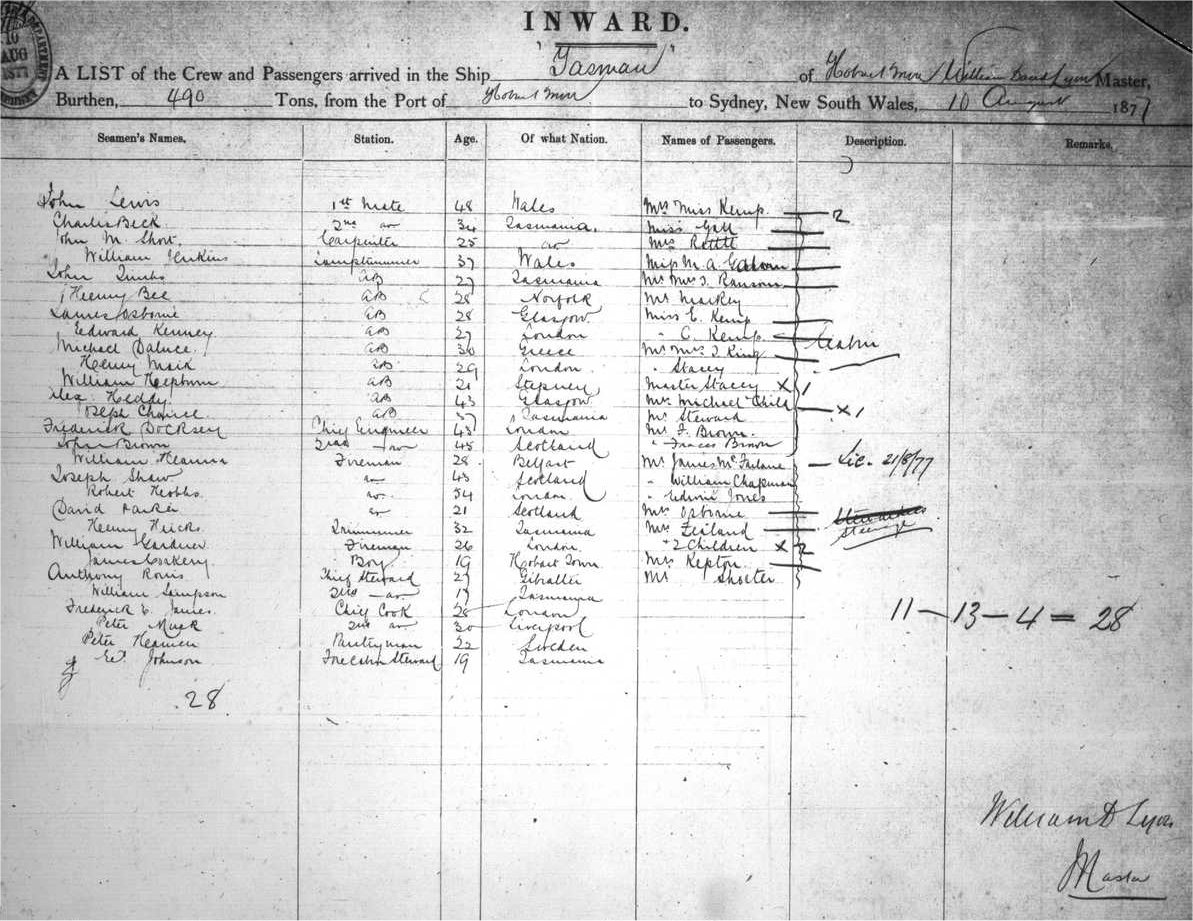 INWARD.
10
AUG
1877
A LIST of the Crew and Passengers arrived in the Ship "Tasman" of Hobart Town William David Lyon Master,
Burthen, 490 Tons, from the Port of Hobart Town to Sydney, New South Wales, 10 August 1877
Seamen's Names. Station. Age. Of what Nation. Names of Passengers. Description. Remarks.
John Lewis 1st Mate 48 Wales Mrs Miss Kemp 2
Charles Beck 2nd do 34 Tasmania. Miss Gall
John M. Short. Carpenter 25 do Mrs
William Jenkins Lamptrimmer 37 Wales Miss M. A.
John AB 27 Tasmania Mr Mrs J. Ransom
Henry Bee AB 28 Norfolk Mr Markey
James Osborne AB 28 Glasgow Miss E. Kemp
Edward Kenney AB 27 London " C. Kemp
Michael AB 30 Greece Mr Mrs J. King Cabin
Henry AB 29 London " Stacey
William Hepburn AB 21 Stepney Master Stacey X 1
Alex. Heddy AB 43 Glasgow Mrs Michael Child X 1
Joseph AB 37 Tasmania Mr Steward
Frederick Dorksey Chief Engineer 43 London Mr F. Brown
John Brown 2nd do 45 Scotland " Brown
William Hanna Fireman 28 Belfast Mr James McFarlane Lic. 21/8/77
Joseph Shaw do 43 Scotland " William Chapman
Robert Hobbs do 54 London " Edwin Jones
David Parker do 21 Scotland Mrs Osborne
Henry Hicks Trimmer 32 Tasmania Mrs Zealand Steerage
William Gardner Fireman 26 London + 2 Children X 2
James Corkery Boy 19 Hobart Town Mrs Kepton
Anthony Chief Steward 27 Gibralter Mr Shorter
William Simpson 2nd do 17 Tasmania
Frederick E. James Chief Cook 28 London
Peter 2nd do 30 Liverpool
Peter Pantryman 22 Sweden
Ed. Johnson Forecabin Steward 19 Tasmania
11 – 13 – 4 = 28
28
William D Lyon
Master